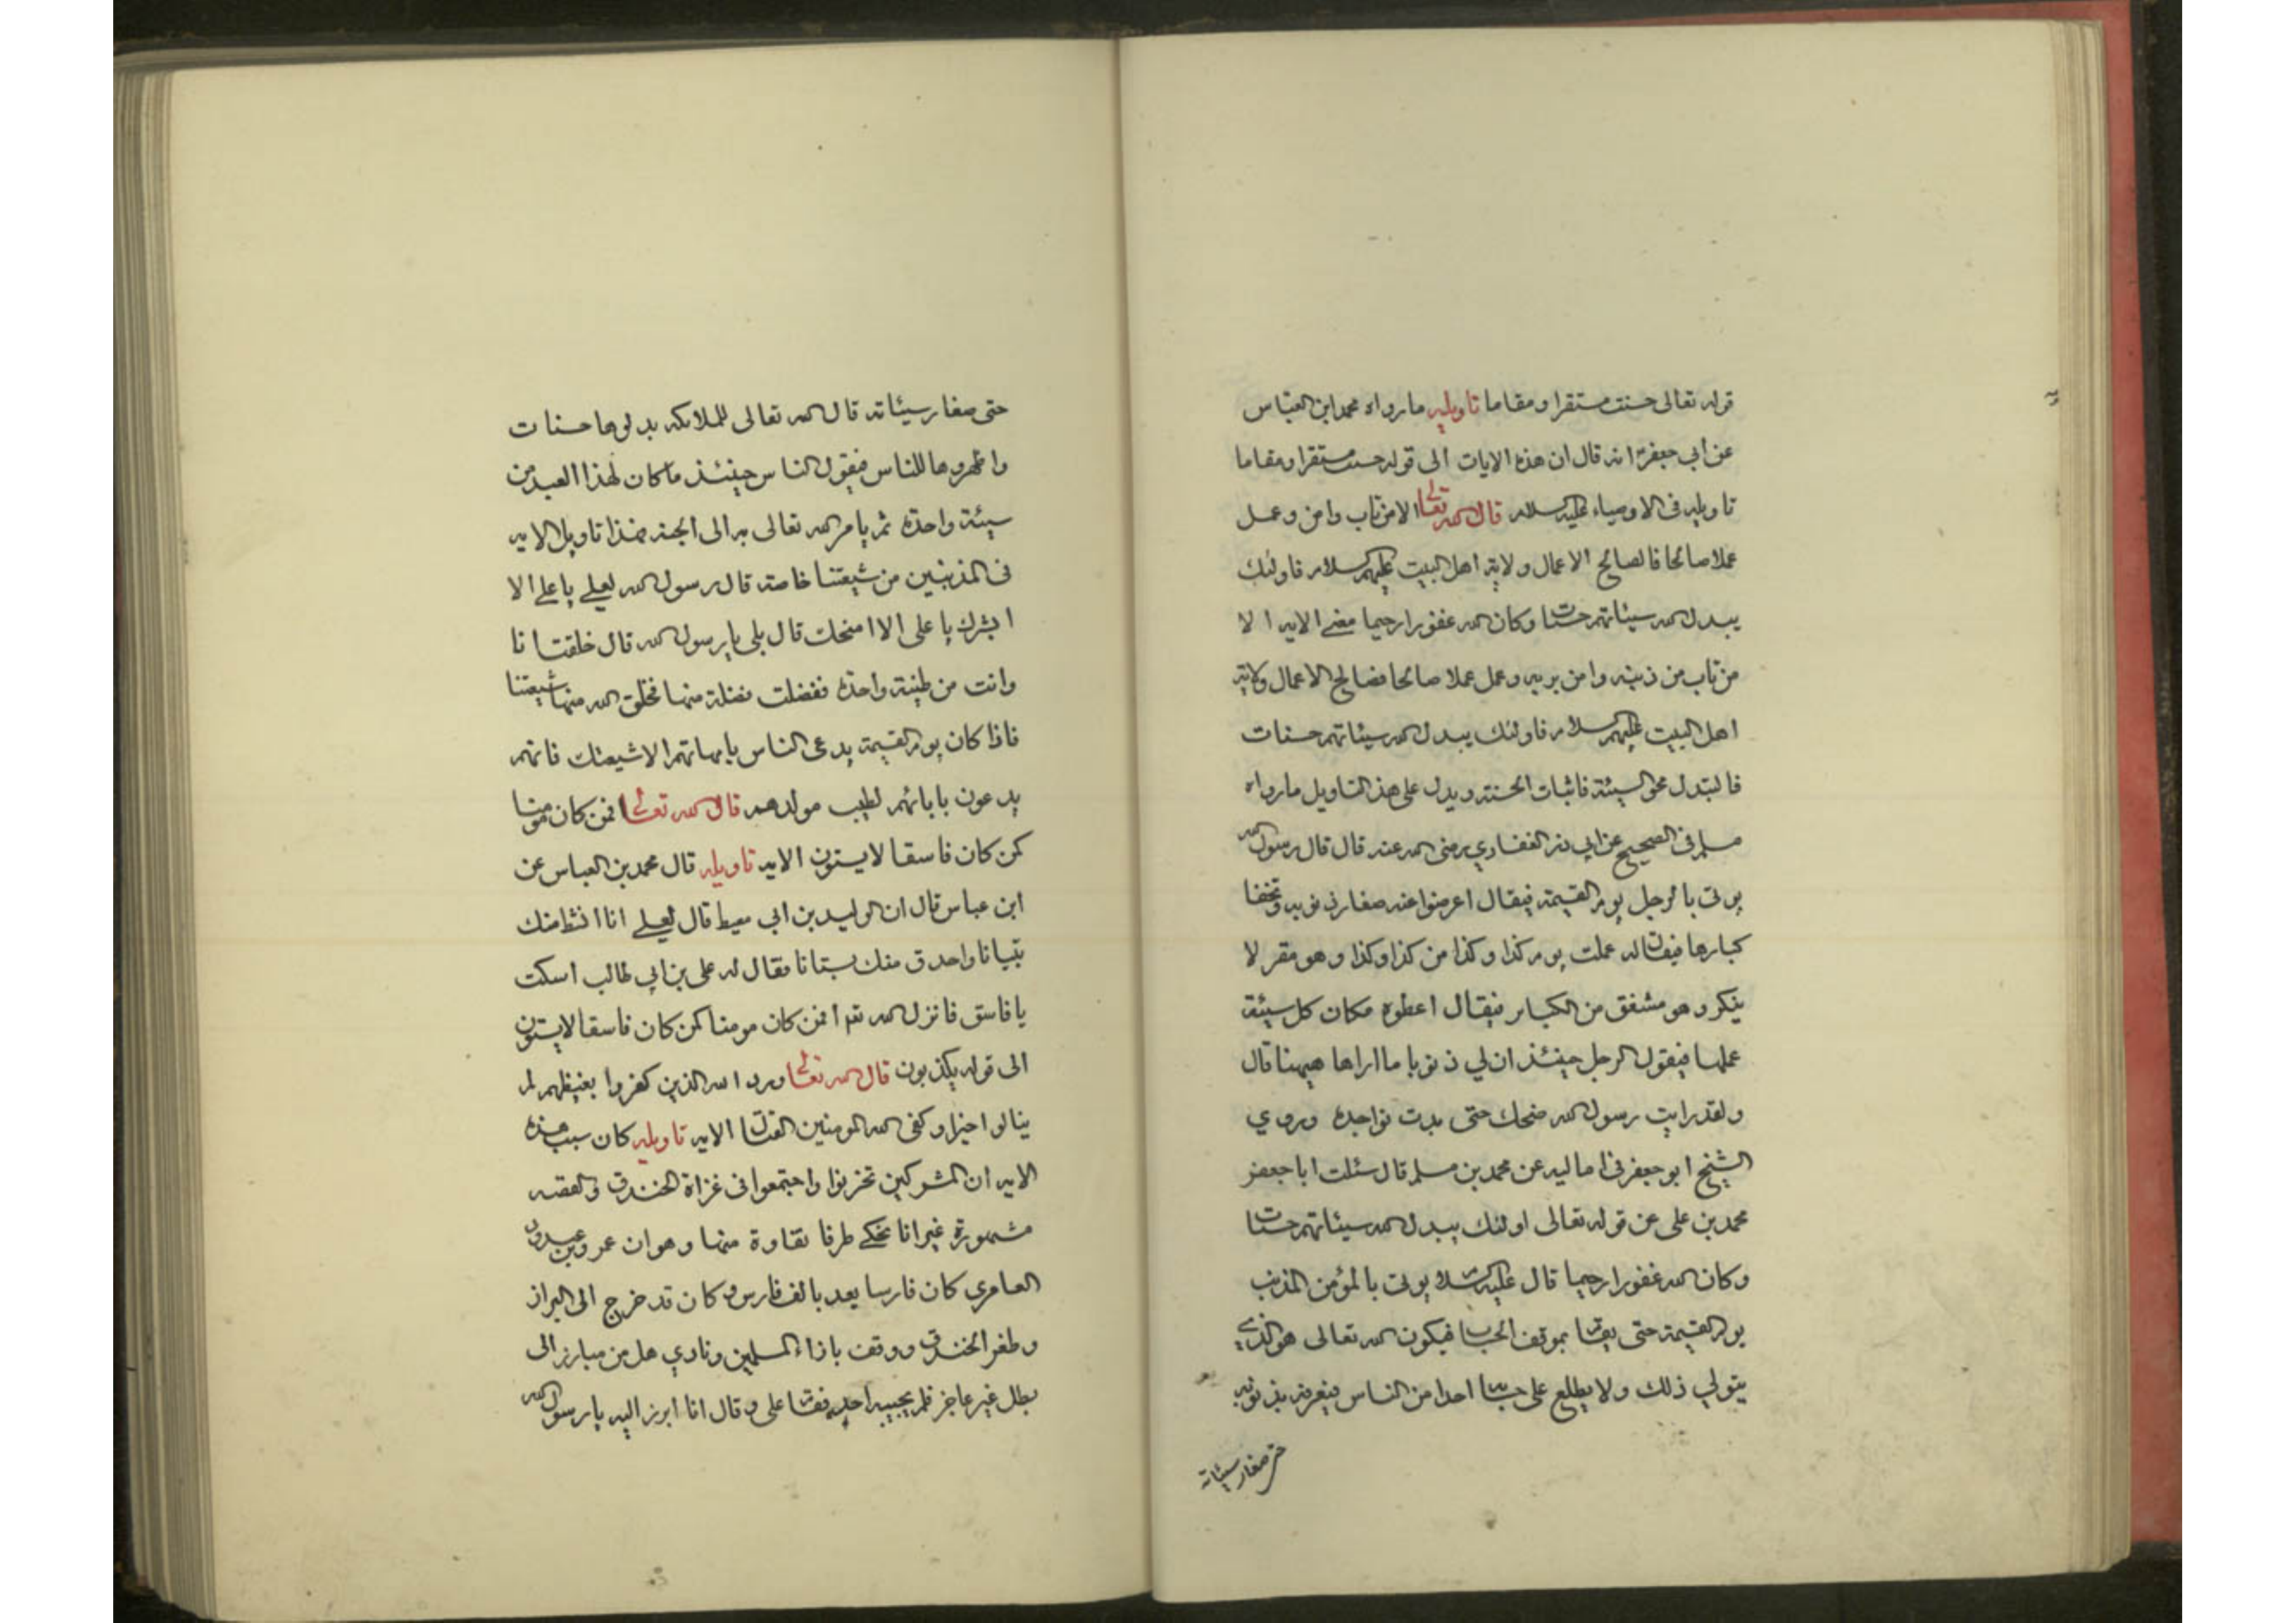 قوله تعالى حسنت مستقرا ومقاما تاويله مارواه محمد ابن العباس
عن ابي جعفر انه قال ان هذه الايات الى قوله حسنت مستقرا ومقاما
تاويله في الاوصياء عليهم السلام قال الله تعالى الا من تاب وامن وعمل
عملا صالحا فالصالح الاعمال ولاية اهل البيت عليهم السلام فاولئك
يبدل الله سيئاتهم حسنات وكان الله غفورا رحيما معنى الايه الا
من تاب من ذنبه وامن بربه وعمل عملا صالحا فصالح الاعمال ولاية
اهل البيت عليهم السلام فاولئك يبدل الله سيئاتهم حسنات
فالتبدل محو السيئة فاثبات الحسنة ويدل على هذ التاويل مارواه
مسلم في الصحيح عن ابي ذر الغفاري رضى الله عنه قال قال رسول الله
يوتى بالرجل يوم القيمة فيقال اعرضوا عنه صغار ذنوبه وتخفا
كبارها فيقال له عملت يوم كذا وكذا من كذا وكذا وهو مقر لا
ينكر وهو مشفق من الكبائر فيقال اعطوه مكان كل سيئة
عملها فيقول الرجل حينئذ ان لي ذنوبا ما اراها هيهنا قال
ولقد رايت رسول الله ضحك حتى بدت نواجده وروي
الشيخ ابو جعفر في اماليه عن محمد بن مسلم قال سئلت ابا جعفر
محمد بن علي عن قوله تعالى اولئك يبدل الله سيئاتهم حسنات
وكان الله غفورا رحيما قال عليه السلام يوتى بالمؤمن المذنب
يوم القيمة حتى يقام بموقف الحساب فيكون الله تعالى هو الذي
يتولي ذلك ولا يطلع على حسابه احدا من الناس فيعرفه بذنوبه
حتى صغار سيئاته
حتى صغار سيئاته قال الله تعالى للملائكه بدلوها حسنات
واظهروها للناس فيقول الناس حينئذ ماكان لهذا العبد من
سيئة واحدة ثم يامر الله تعالى به الى الجنه فهذا تاويل الايه
في المذنبين من شيعتنا خاصة قال رسول الله لعلي ياعلي الا
ابشرك يا على الا امنحك قال بلى يارسول الله قال خلقت انا
وانت من طينة واحدة ففضلت فضلة منها فخلق الله منها شيعتنا
فاذا كان يوم القيمة يدعى الناس بامهاتهم الا شيعتك فانهم
يدعون بابائهم لطيب مولدهم قال الله تعالى افمن كان مومنا
كمن كان فاسقا لايستون الايه تاويله قال محمد بن العباس عن
ابن عباس قال ان الوليد بن ابي معيط قال لعلي انا انشط منك
واحد منك فقال له علي بن ابي طالب اسكت
يا فاسق فانزل الله افمن كان مومنا كمن كان فاسقا لايستون
الى قوله يكذبون قال الله تعالى ورد الله الذين كفروا بغيظهم لم
ينالوا خيرا وكفى الله المومنين القتال الايه تاويله كان سبب هذه
الايه ان المشركين تحزبوا واجتمعوا في غزاة الخندق والقصه
مشهورة غير انا نحكي طرفا منها وهو ان عمرو بن عبدود
العامري كان فارسا يعد بالف فارس وكان قد خرج الى البراز
وطفر الخندق ووقف باذاء المسلمين ونادي هل من مبارز الى
بطل غير عاجز فلم يجيبه احد فقام علي وقال انا ابرز اليه يارسول الله